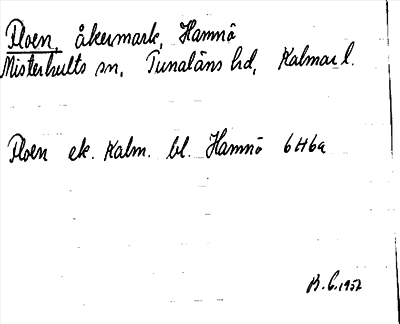 Ploen, åkermark, Hamnö
Misterhults sn, Tunaläns hd, Kalmar l.
Ploen ek. Kalm. bl. Hamnö 6H6a
B.E. 1952